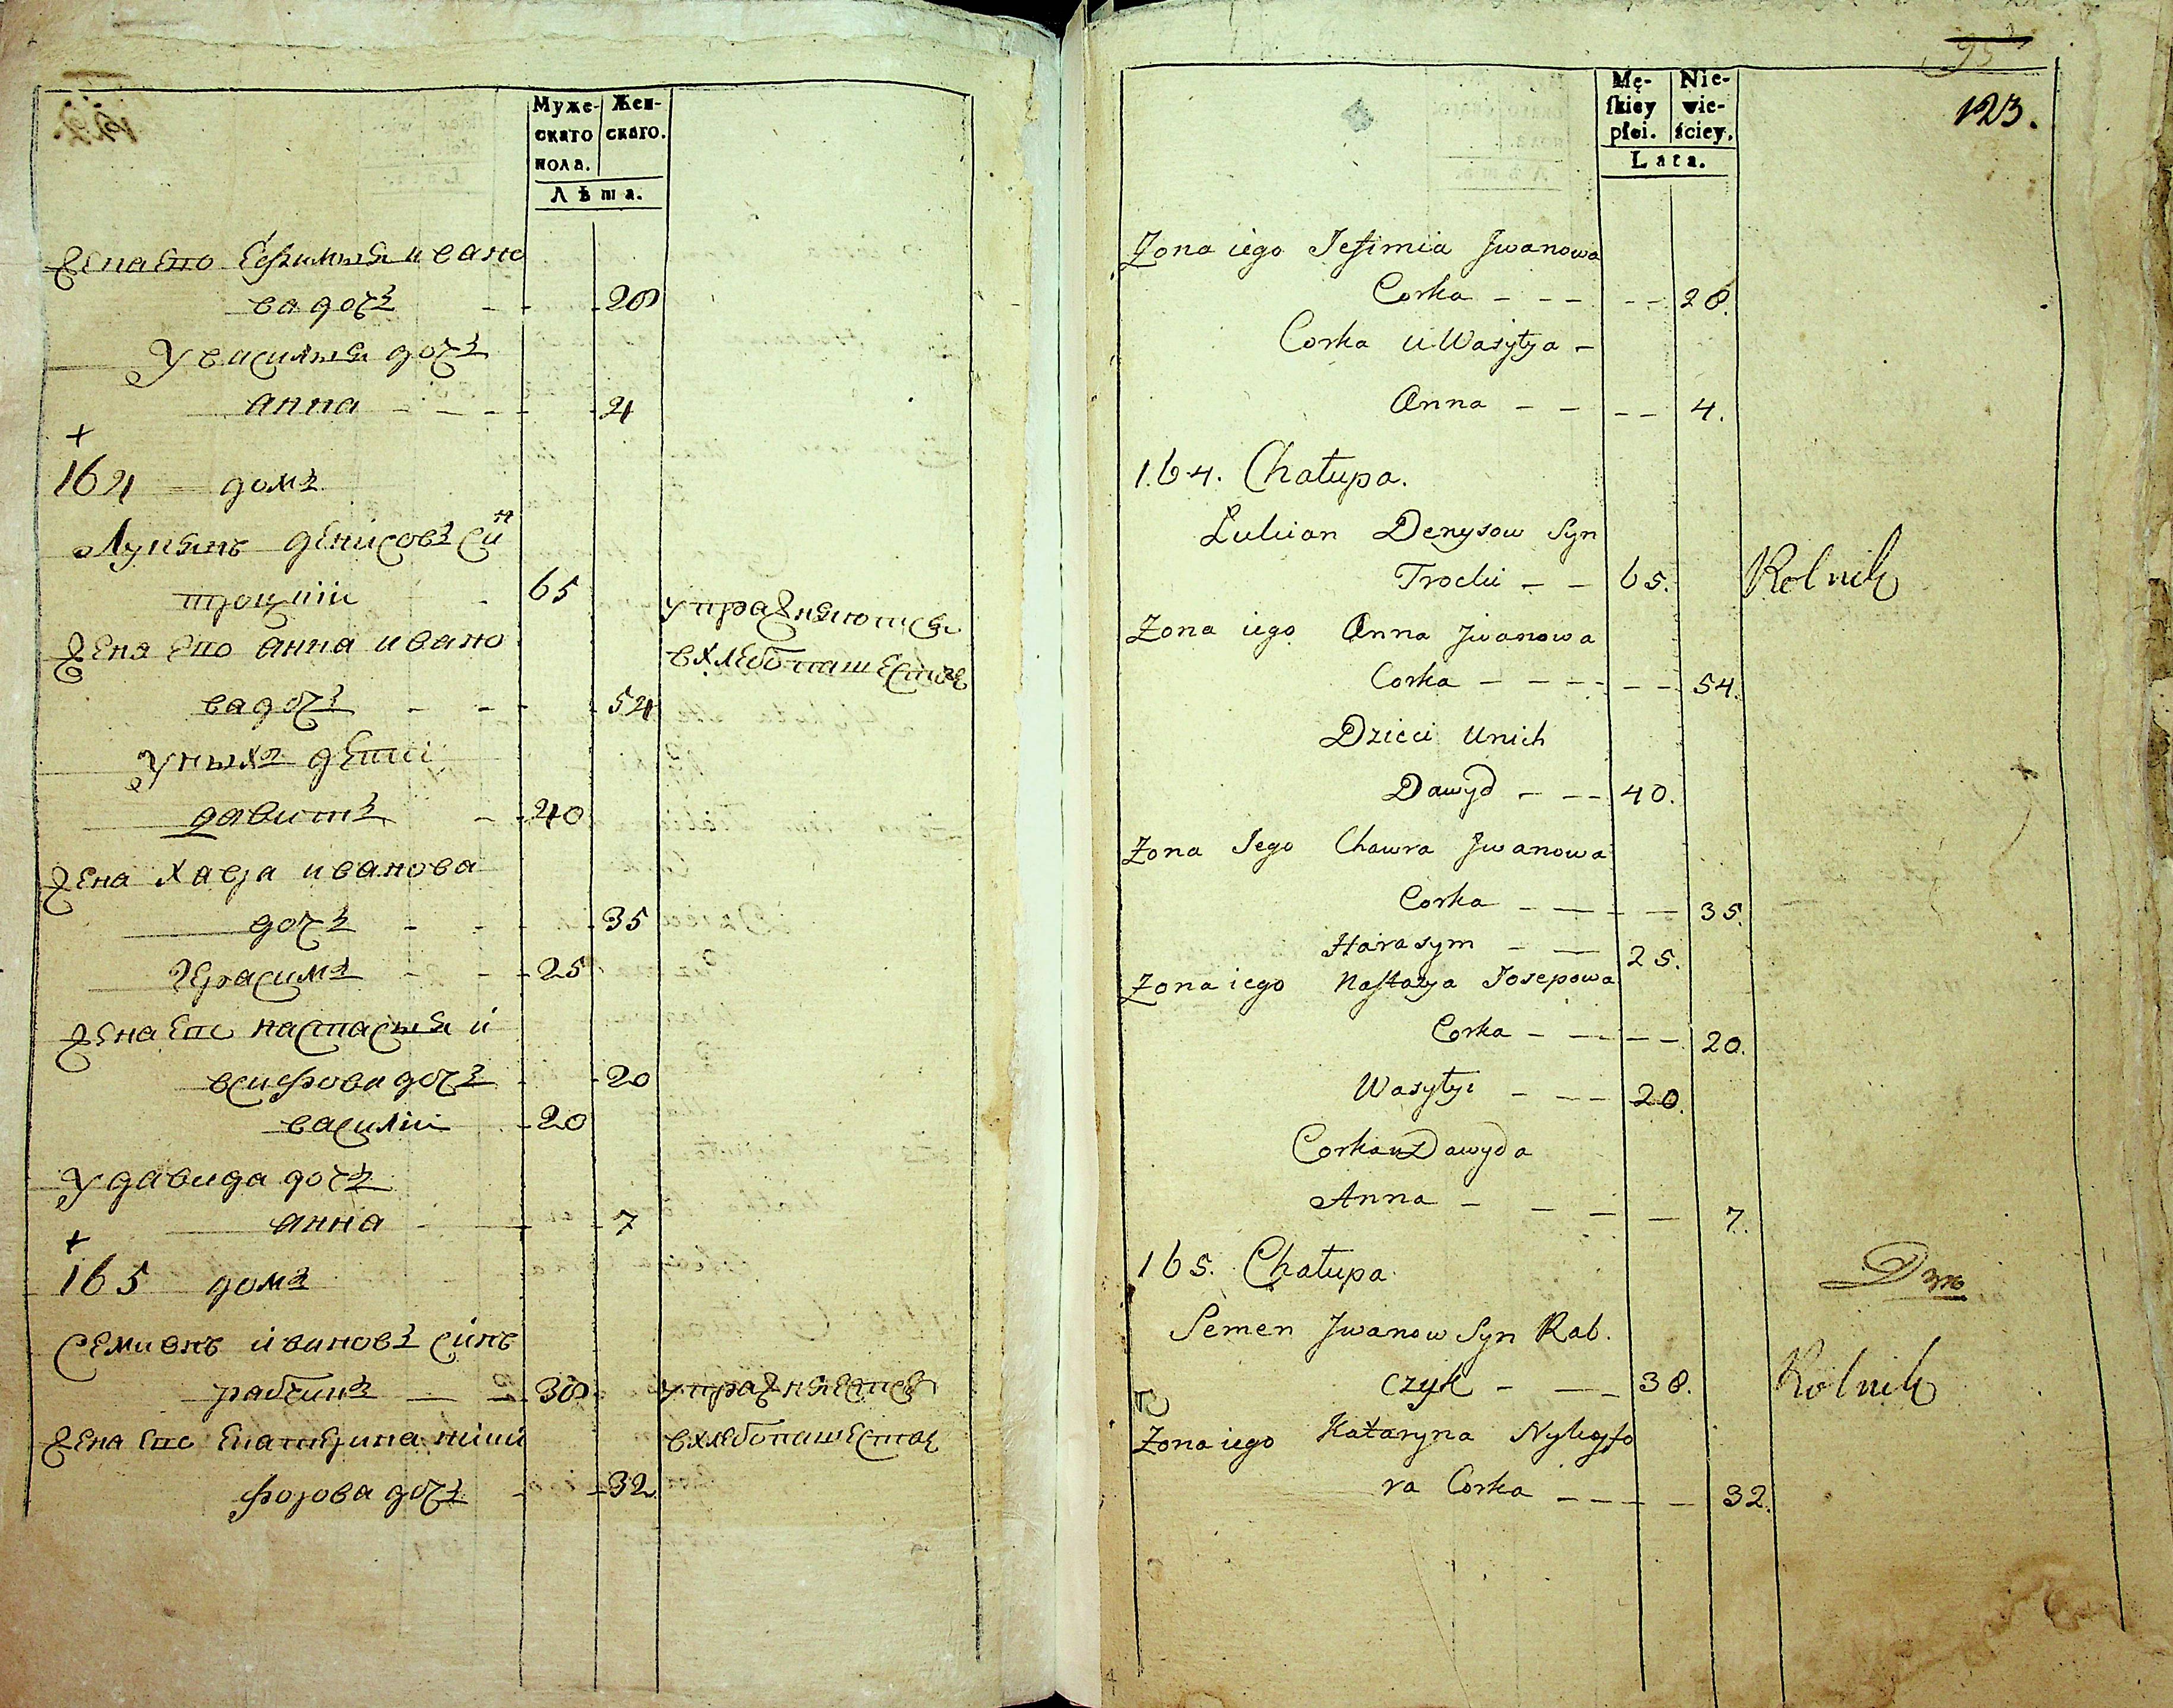 Муже-
скаго
пола.
Жен-
скаго.
Лѣта.
жена его ефимия ивано
ва дочъ 28
У василия дочъ
анна 4
+
164 домъ
Лукянъ денисовъ сїн
троцкій 65
упражняются
в хлебопашествѣ
жена его анна ивано
ва дочъ 54
у ныхъ детеі
давитъ 40
жена хавра иванова
дочъ 35
Герасимъ 25
жена его настасия и
всифова дочъ 20
василій 20
У давида дочъ
анна 7
+
165 домъ
семионъ ивановъ сінъ
рабчикъ 38
упражняется
в хлебопашествѣ
жена его екатерина ники
форова дочъ 32
95
123.
Mę-
ſkiey
płci.
Nie-
wie-
ściey.
Lata.
Zona iego Jefimia Jwanowa
Corka - - - - - 28.
Corka u Wasyłya -
Anna - - - - 4.
164. Chałupa.
Lukian Denysow Syn
Trocki - - 65. Rolnik
Zona iego Anna Jwanowa
Corka - - - - - - 54.
Dzieci Unich
Dawyd - - - 40.
Zona Jego Chawra Jwanowa
Corka - - - - 35.
Harasym - - 25.
Zona iego Naſtazya Josepowa
Corka - - - - 20.
Wasyłyi - - - 20.
Corka u Dawyda
Anna - - - - 7.
165. Chałupa.
Semen Jwanow Syn Rab.
czyk - - - 38. Rolnik
Zona iego Kataryna Nykyfo
ra Corka - - - - - 32.